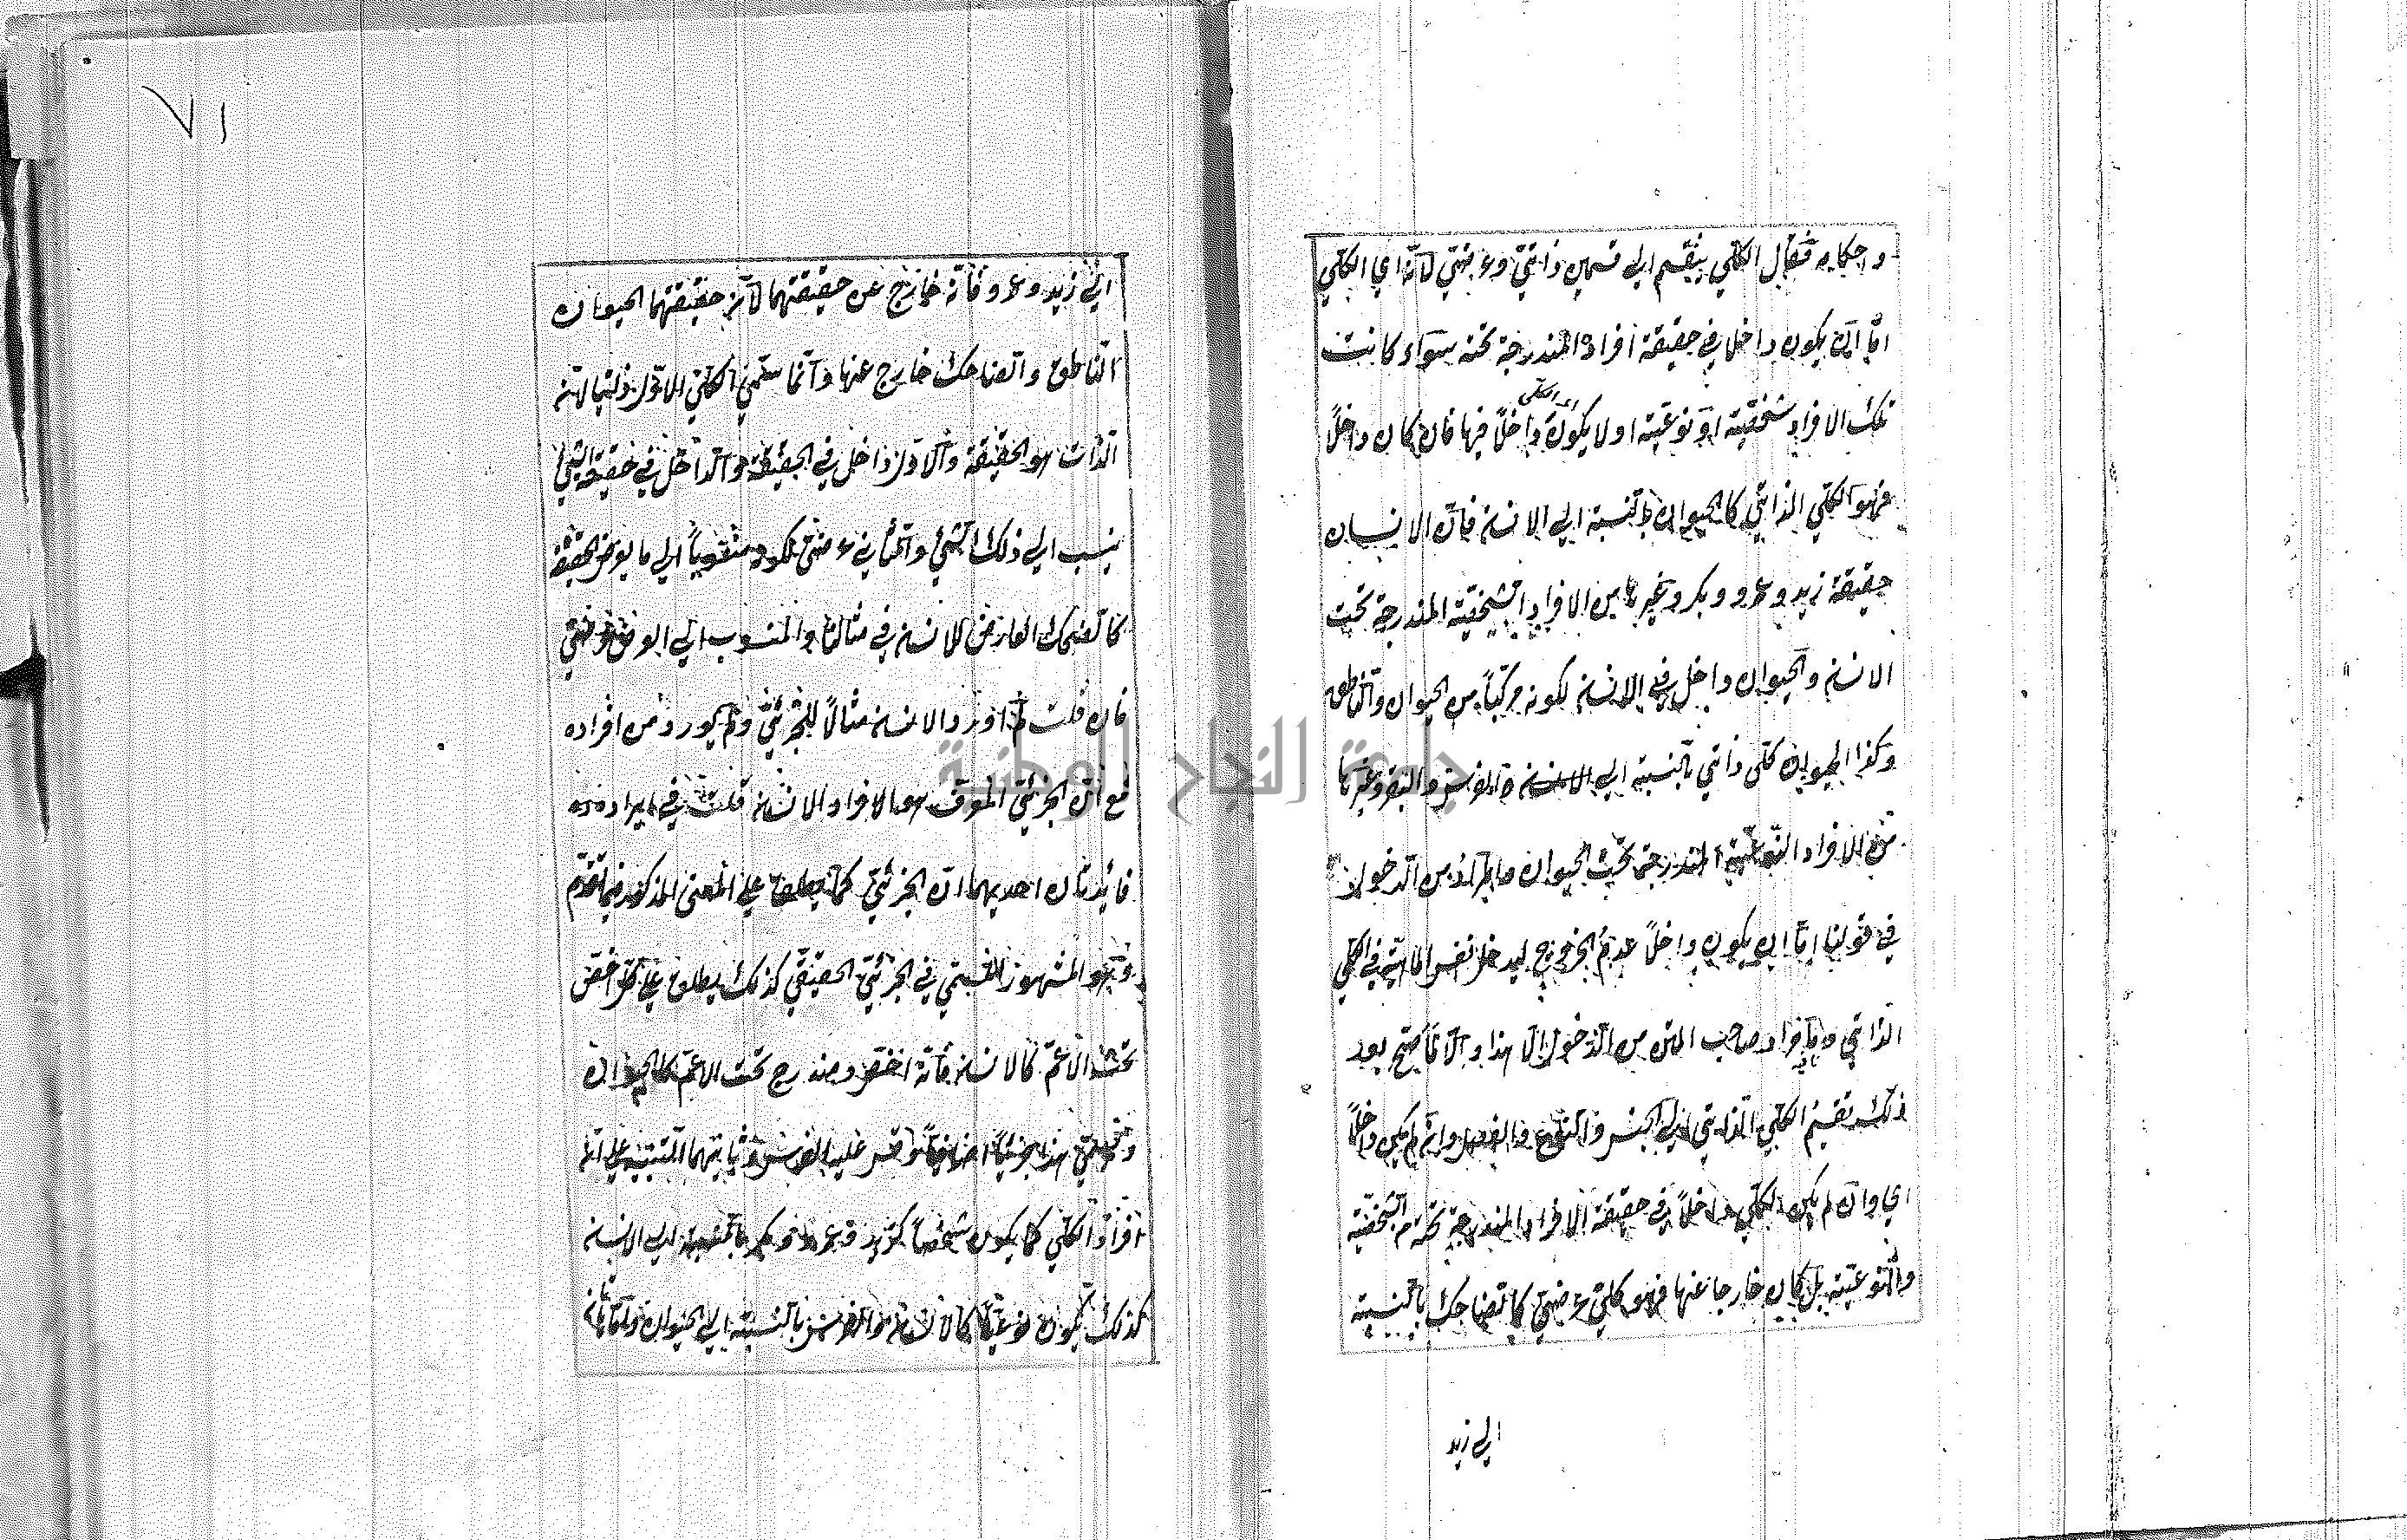 واحكامه فقال الكلي ينقسم الى قسمين ذاتي وعرضي لانه اي الكلي
اما ان يكون داخلا في حقيقة افراده المندرجة تحته سواء كانت
تلك الافراد شخصية او نوعية او لا يكون داخلاً فيها فان كان داخلاً
اي الكلي
فهو الكلي الذاتي كالحيوان بالنسبة الى الانسان فان الانسان
حقيقة زيد وعمرو وبكر وغيرها من الافراد الشخصية المندرجة تحت
الانسان والحيوان داخل في الانسان لكونه مركباً من الحيوان والناطق
وكذا الحيوان كلي ذاتي بالنسبة الى الانسان والفرس والبقر وغيرها
من الافراد النوعية المندرجة تحت الحيوان والمراد من الدخول
في قولنا اما ان يكون داخلاً عدم الخروج ليدخل نفس الماهية في الكلي
الذاتي وما مراد صاحب المتن من الدخول الا هذا والا لما صح بعد
ذلك تقسيم الكلي الذاتي الى الجنس والنوع والفصل وان لم يكن داخلاً
اي وان لم يكن الكلي داخلاً في حقيقة الافراد المندرجة تحته من الشخصية
والنوعية بل كان خارجا عنها فهو كلي عرضي كالضاحك بالنسبة
الى زيد
٧١
الى زيد وعمرو فانه خارج عن حقيقتهما لان حقيقتهما الحيوان
الناطق والضاحك خارج عنها وانما سمي الكلي الاول ذاتيا لانه
الذات هو الحقيقة والاول داخل في الحقيقة والداخل في حقيقة الشئ
ينسب الى ذلك الشئ والثاني عرضي لكونه منسوباً الى ما يعرض الحقيقة
كالضحك العارض للانسان في مثالنا والمنسوب الى العرض عرضي
فان قلت لم اورد الانسان مثالاً للجزئي ولم يورد من افراده
مع ان الجزئي المعرف هو الافراد الانسان قلت في ايراده
فائدتان احديهما ان الجزئي كما يطلق على المعنى المذكور فيما تقدم
وهو المشهور المسمى في الجزئي الحقيقي كذلك يطلق على كل اخص
تحت الاعم كالانسان فانه اخص ومندرج تحت الاعم كالحيوان
ويسمى هذا جزئياً اضافياً وقس عليه الفرس وثانيتهما التنبيه على ان
افراد الكلي كما يكون شخصاً كزيد وعمرو وبكر بالنسبة الى الانسان
كذلك يكون نوعياً كالانسان والفرس بالنسبة الى الحيوان
جامعة النجاح الوطنية